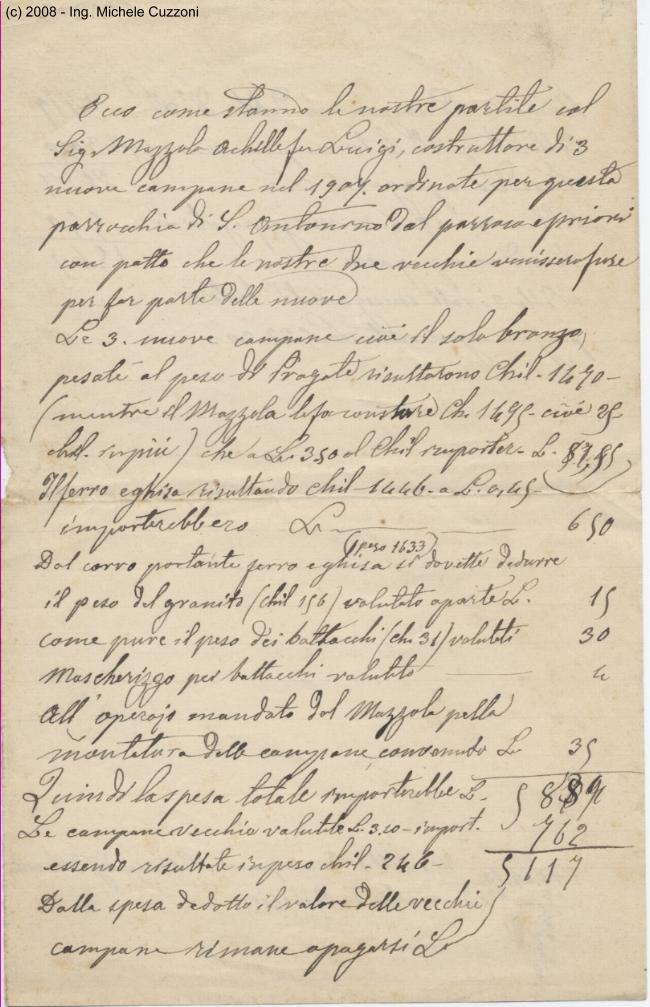 (c) 2008 - Ing. Michele Cuzzoni
Ecco come stanno le nostre partite col
Sigr Mazzola Achille fu Luigi, costruttore di 3
nuove campane nel 1904. ordinate per questa
parrochia di S. Antonino dal parroco e priori
con patto che le nostre due vecchie venissero fuse
per far parte delle nuove
Le 3. nuove campane cioè il solo bronzo,
pesate al peso di Pragate risultarono Chil. 1470 -
(mentre il Mazzola le fa constare Ch. 1495 - cioè 25
chil. in più) che a L. 3,50 al Chil importer. L.
Il ferro e ghisa risultando chil - 1446 - a L. 0,45 -
importerebbero L 650
(peso 1633)
Dal carro portante ferro e ghisa si dovette dedurre
il peso del granito (chil 156) valutato a parte L. 15
come pure il peso dei battacchi (ch. 31) valutati 30
Mascherizzo pei battacchi valutato 4
All' operajo mandato dal Mazzola pella
montatura delle campane convenuto L 35
Quindi la spesa totale importerebbe L.
Le campane vecchie valutate L. 3.10 - import. 762
essendo risultate in peso chil - 246 - 5117
Dalla spesa dedotto il valore delle vecchie
campane rimane a pagarsi L